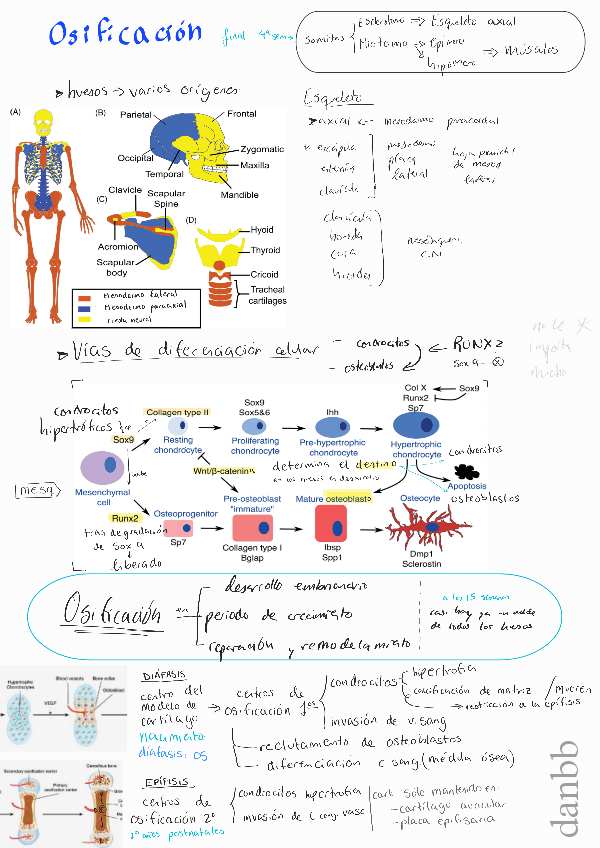 Osificación
final 4ª sem
Somitas
Esclerotomo → Esqueleto axial
Miotomo → Epímero
hipómero
⇒ Músculos
huesos → varios orígenes
(A)
(B)
Parietal
Frontal
Occipital
Temporal
Zygomatic
Maxilla
Mandible
(C)
Clavicle
Scapular
Spine
Acromion
Scapular
body
(D)
Hyoid
Thyroid
Cricoid
Tracheal
cartilages
Mesodermo lateral
Mesodermo paraaxial
cresta neural
Esqueleto
axial <-- mesodermo paraaxial
* escápula
esternón
clavícula
mesodermo
placa
lateral
clavícula
cara
hioides
Vías de diferenciación celular
- condrocitos
- osteoblastos
← RUNX2
Sox9
no le
importa
mucho
condrocitos
hipertróficos
Collagen type II
Sox9
Resting
chondrocyte
Sox9
Sox5&6
Proliferating
chondrocyte
Ihh
Pre-hypertrophic
chondrocyte
Col X
Runx2
Sp7
Sox9
Hypertrophic
chondrocyte
condrocitos
Wnt/β-catenin
determina el destino
Apoptosis
osteoblastos
[mesq]
Mesenchymal
cell
Runx2
tras degradación
de Sox9
liberado
Osteoprogenitor
Sp7
Pre-osteoblast
"immature"
Collagen type I
Bglap
Mature osteoblasto
Ibsp
Spp1
Osteocyte
Dmp1
Sclerostin
Osificación en
desarrollo embrionario
periodo de crecimiento
reparación y remodelamiento
a las 15 semanas
casi hay ya un molde
de todos los huesos
Hypertrophic
Chondrocytes
VEGF
Blood vessels
Bone collar
Osteoblast
DIÁFISIS
centro del
modelo de
cartílago:
nacimiento
diáfisis: OS
→ centros de
osificación 1ºs
condrocitos
hipertrofia
calcificación de matriz / mueren
→ restricción a la epífisis
invasión de v. sang
reclutamiento de osteoblastos
diferenciación c sang (médula ósea)
Secondary ossification center
Primary
ossification center
Cancellous bone
EPÍFISIS
centros de
osificación 2º
2º años postnatales
condrocitos hipertrofia
invasión de c cong. vasc
cart. sólo mantenido en:
- cartílago articular
- placa epifisaria
danbb